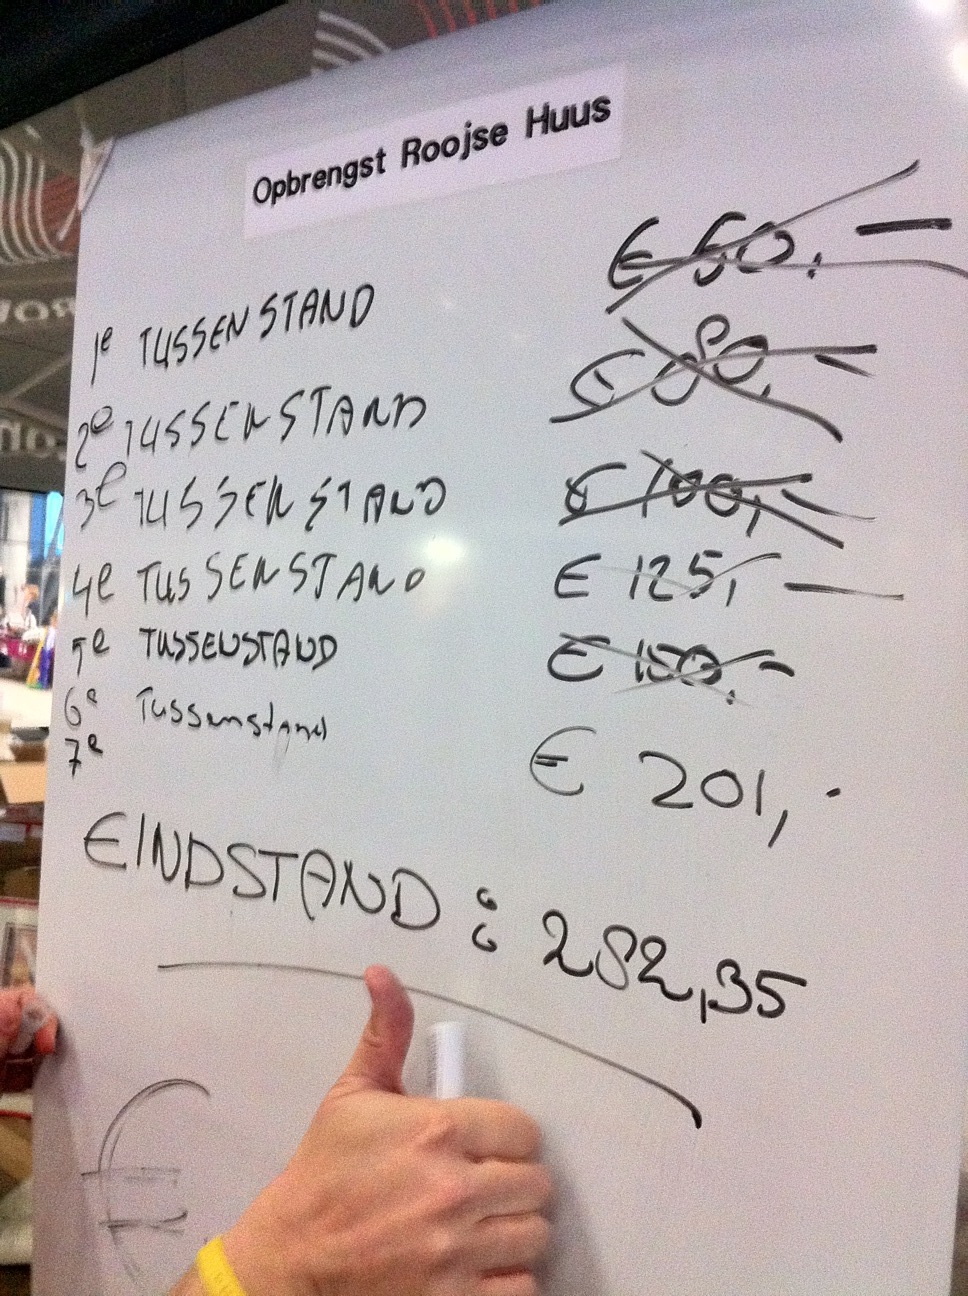 Opbrengst Roojse Huus
1e TUSSENSTAND € 50,-
2e TUSSENSTAND € 80,-
3e TUSSENSTAND € 100,-
4e TUSSENSTAND € 125,-
5e TUSSENSTAND € 150,-
6e Tussenstand € 201,-
7e
EINDSTAND: 282,35
€